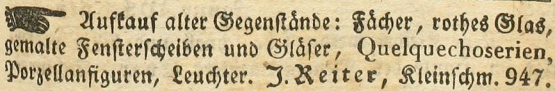 ☛ Aufkauf alter Gegenstände: Fächer, rothes Glas,
gemalte Fensterscheiben und Gläser, Quelquechoserien,
Porzellanfiguren, Leuchter. J. Reiter, Kleinschm. 947.